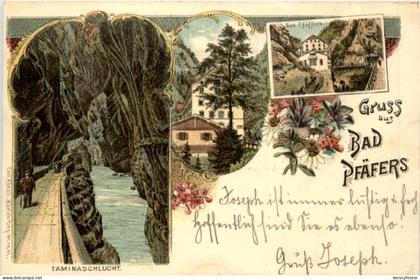 Bad Pfäfers
Gruss
aus
BAD
PFÄFERS
Joseph ist immer lustig & froh
hoffentlich sind Sie es ebenso.
Grüß Joseph.
TAMINASCHLUCHT.